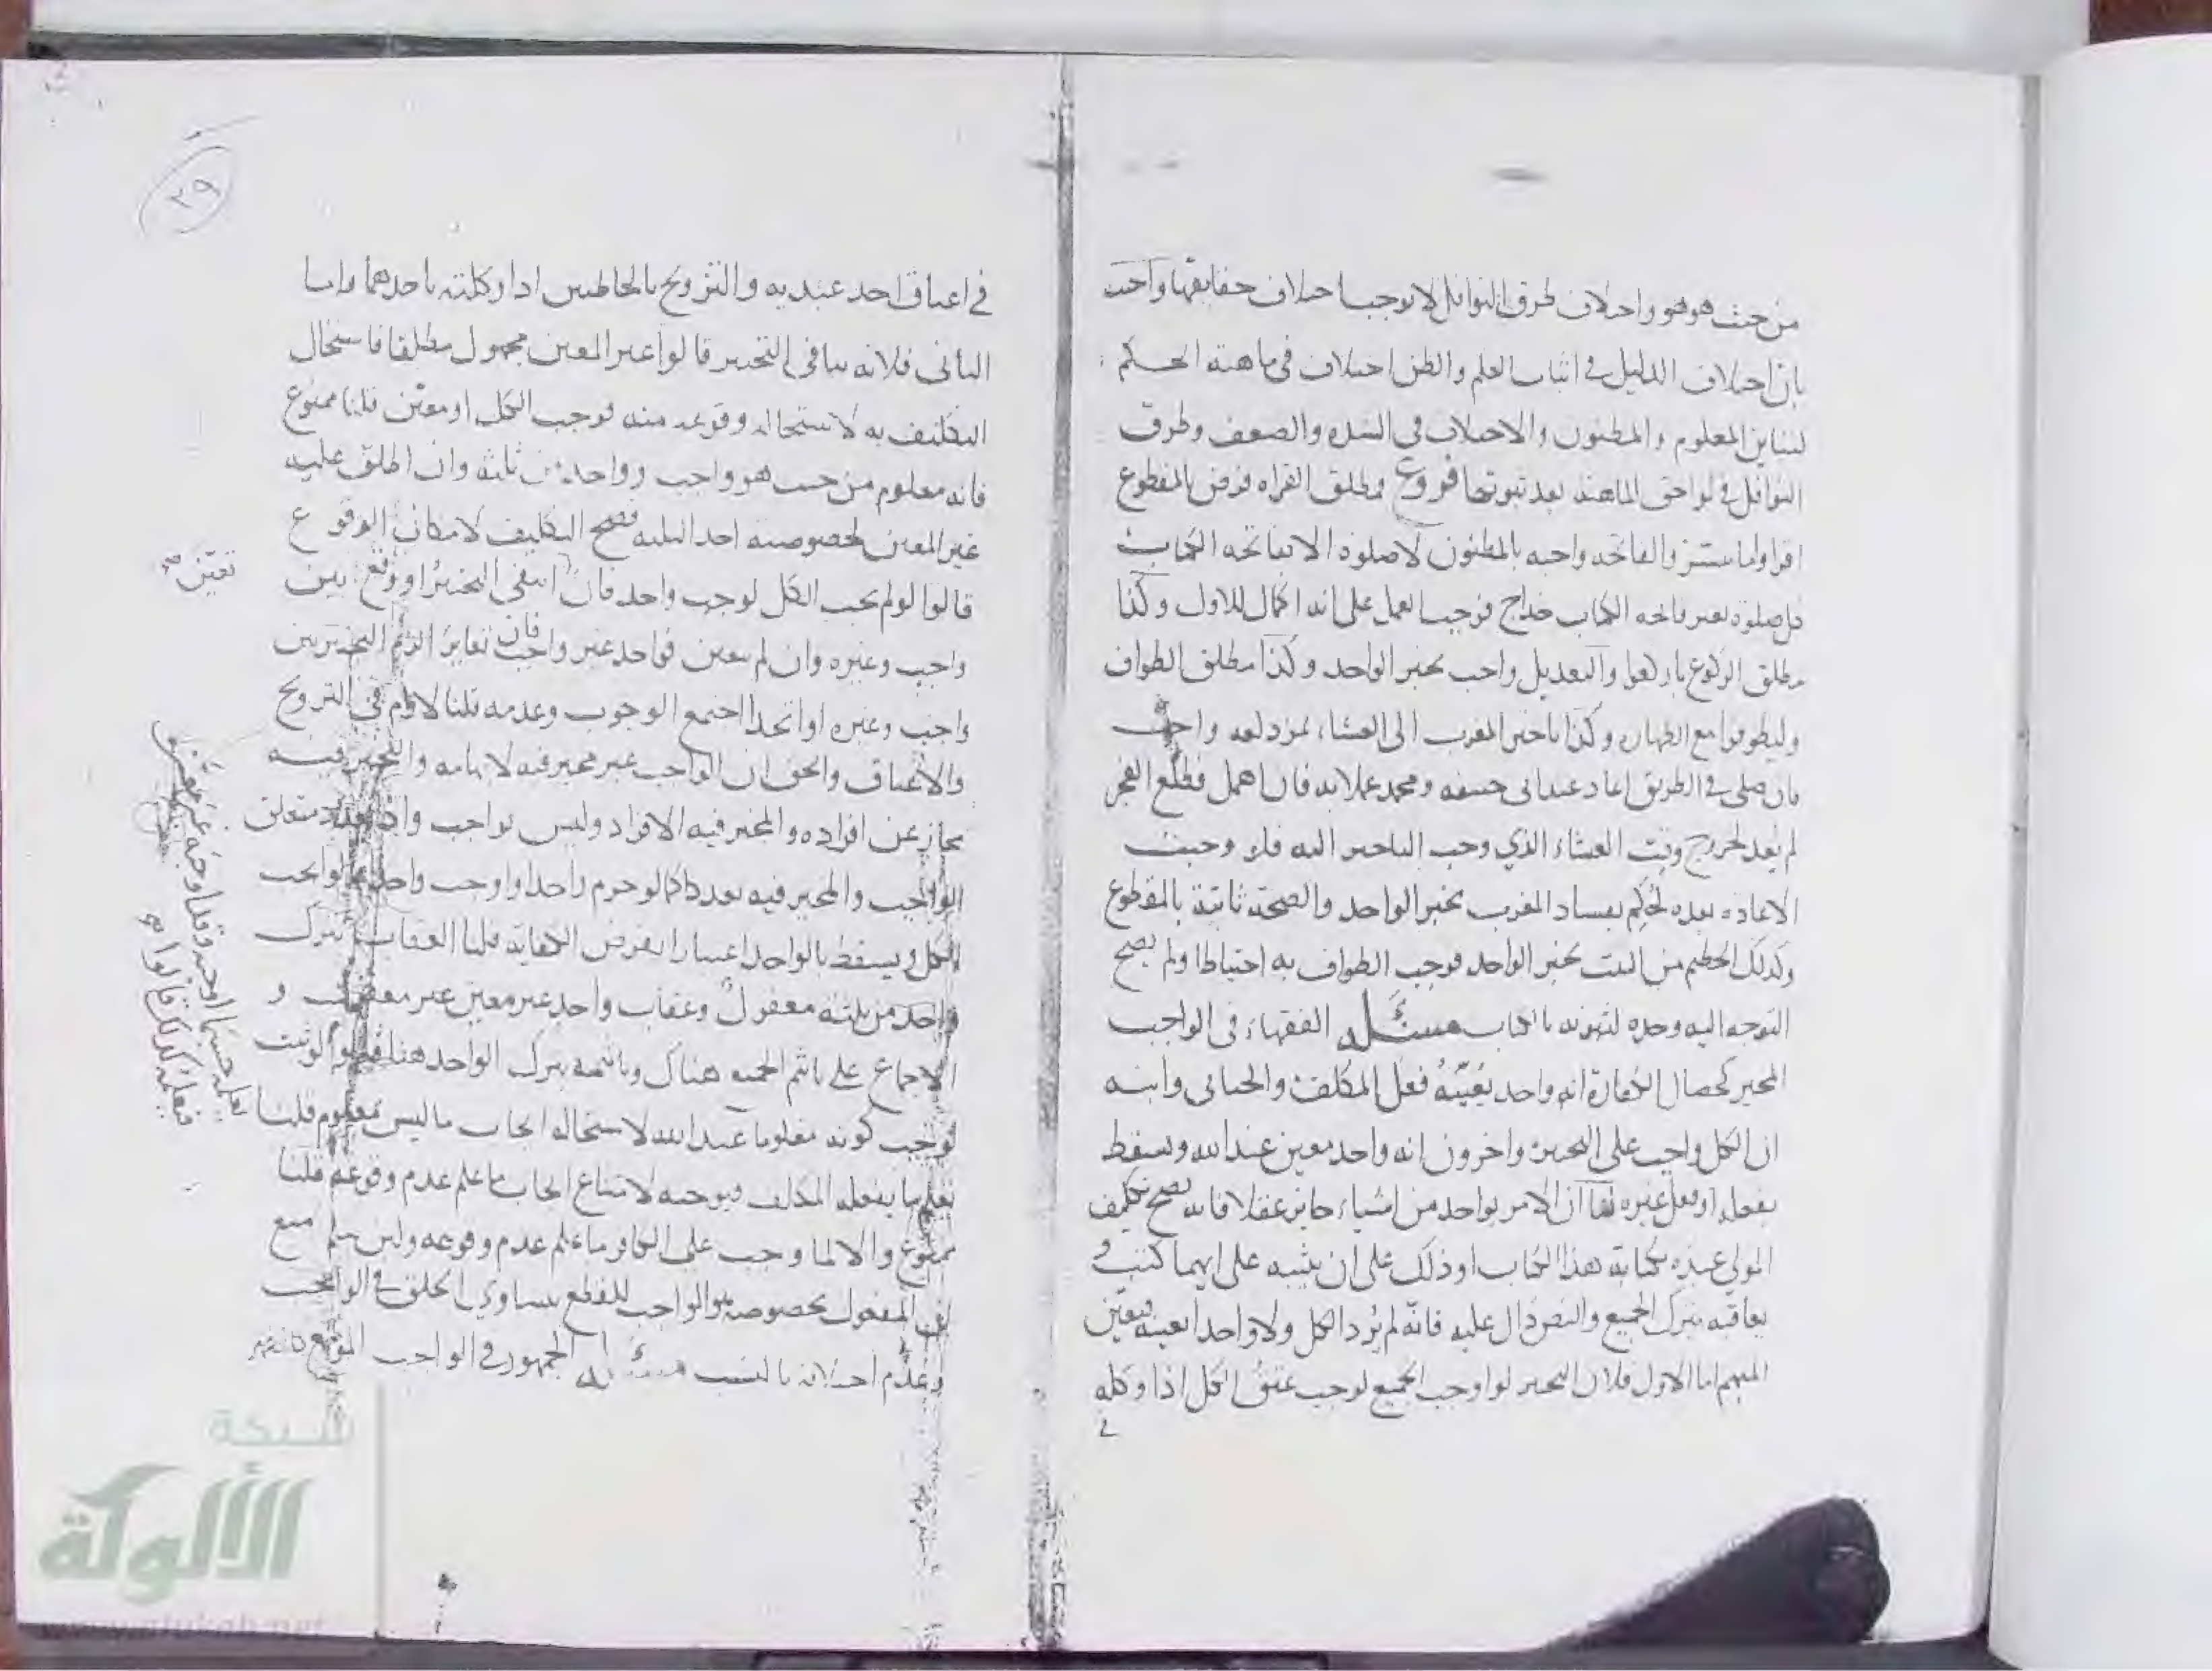 من حيث هو هو واختلاف طرق النوافل لا يوجب اختلاف حقايقها واجيب
بان اختلاف الدليل في اثبات العلم والظن اختلاف في ماهية الحكم
لتباين المعلوم والمظنون والاختلاف في الشدة والضعف وطرق
النوافل في لواحق الماهية بعد ثبوتها فروع مطلق القراة فرض بالمقطوع
اقراوا ما تيسر والفاتحة واجبة بالمظنون لا صلوة الا بفاتحة الكتاب
كل صلوة بغير فاتحة الكتاب خداج فوجب العمل على انه اكمال للاول وكذا
مطلق الركوع باركعوا والتعديل واجب بخبر الواحد وكذا مطلق الطواف
وليطوفوا مع الطهارة وكذا تاخير المغرب الى العشاء بمزدلفة واجب
فان صلى في الطريق اعاد عند ابي حنيفة ومحمد عملا به فان اهمل فطلع الفجر
لم يعد لخروج وقت العشاء الذي وجب التاخير اليه فلو وجبت
الاعادة بعده لحكم بفساد المغرب بخبر الواحد والصحة ثابتة بالمقطوع
وكذلك الحطيم من البيت بخبر الواحد فوجب الطواف به احتياطا ولم يصح
التوجه اليه وحده لثبوته بالكتاب مسئلة الفقهاء في الواجب
المخير كخصال الكفارة انه واحد يعينه فعل المكلف والجبائي وابنه
ان الكل واجب على التخيير واخرون انه واحد معين عند الله ويسقط
بفعله او فعل غيره لنا ان الامر بواحد من اشياء جايز عقلا فانه يصح تكليف
المولى عبده بكتابة هذا الكتاب او ذلك على ان يثيبه على ايهما كتب و
يعاقبه بترك الجميع والنص دال عليه فانه لم يرد الكل ولا واحدا بعينه فيعين
المبهم اما الاول فلان التخيير لو اوجب الجميع لوجب عتق الكل اذا وكله
في
٢٩
في اعتاق احد عبديه والتزويج بالخاطبين اذا وكلته باحدهما واما
الثاني فلانه ينافي التخيير قالوا غير المعين مجهول مطلقا فاستحال
التكليف به لاستحالة وقوعه منه فوجب الكل او معين قلنا ممنوع
فانه معلوم من حيث هو واجب وواحد من ثلثة وان اطلق عليه
غير المعين لخصوصيته احد الثلثة فصح التكليف لامكان الوقوع
قالوا لو لم يجب الكل لوجب واحد فان انتفى التخيير او وقع بين
تعين صح
واجب وغيره وان لم يتعين فواحد غير واجب فان تغاير لزم التخيير بين
واجب وغيره او اتحدا اجتمع الوجوب وعدمه قلنا لازم في التزويج
والاعتاق والحق ان الواجب غير مخير فيه لابهامه والتخيير فيه
مجاز عن افراده والمخير فيه الافراد وليس بواجب واذا تعدد متعلق
الواجب والمخير فيه بعدد كما لو حرم واحدا واوجب واحدا قالوا يجب
الكل ويسقط بالواحد اعتبارا بفرض الكفاية قلنا العقاب بترك
واحد من ثلثة معقول وعقاب واحد غير معين غير معقول و
الاجماع على تاثيم الجميع هناك وتاثيمه بترك الواحد هنا قالوا لو ثبت
لوجب كونه معلوما عند الله لاستحالة ايجاب ما ليس بمعلوم قلنا
يعلمه حسبما اوجبه وقد اوجبه غير معين
فيعلمه كذلك قالوا صح
يعلم ما يفعله المكلف فيوجبه لامتناع ايجاب ما علم عدم وقوعه قلنا
ممنوع والا لما وجب على الكافر ما علم عدم وقوعه ولئن سلم منع
ان المفعول بخصوصه هو الواجب للقطع بتساوي الخلق في الواجب
وعدم اختلافه بالنسب مسئلة الجمهور في الواجب الموسع
شبكة
الألوكة
www.alukah.net